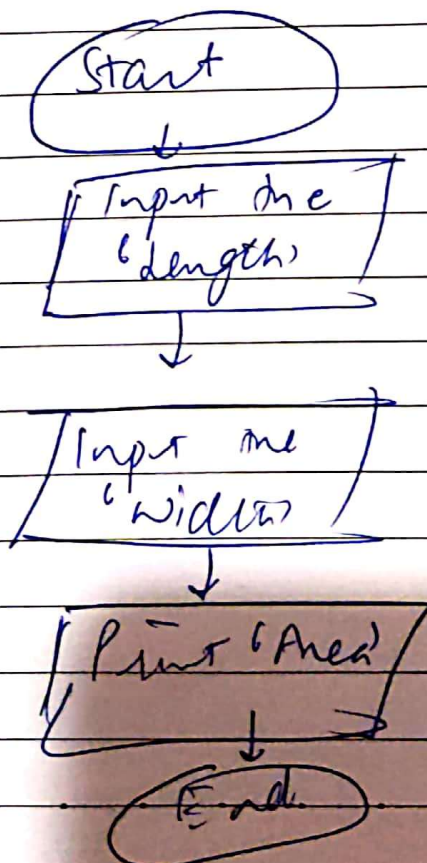 Start
Input the
'Length'
Input the
'Width'
Print 'Area'
End.